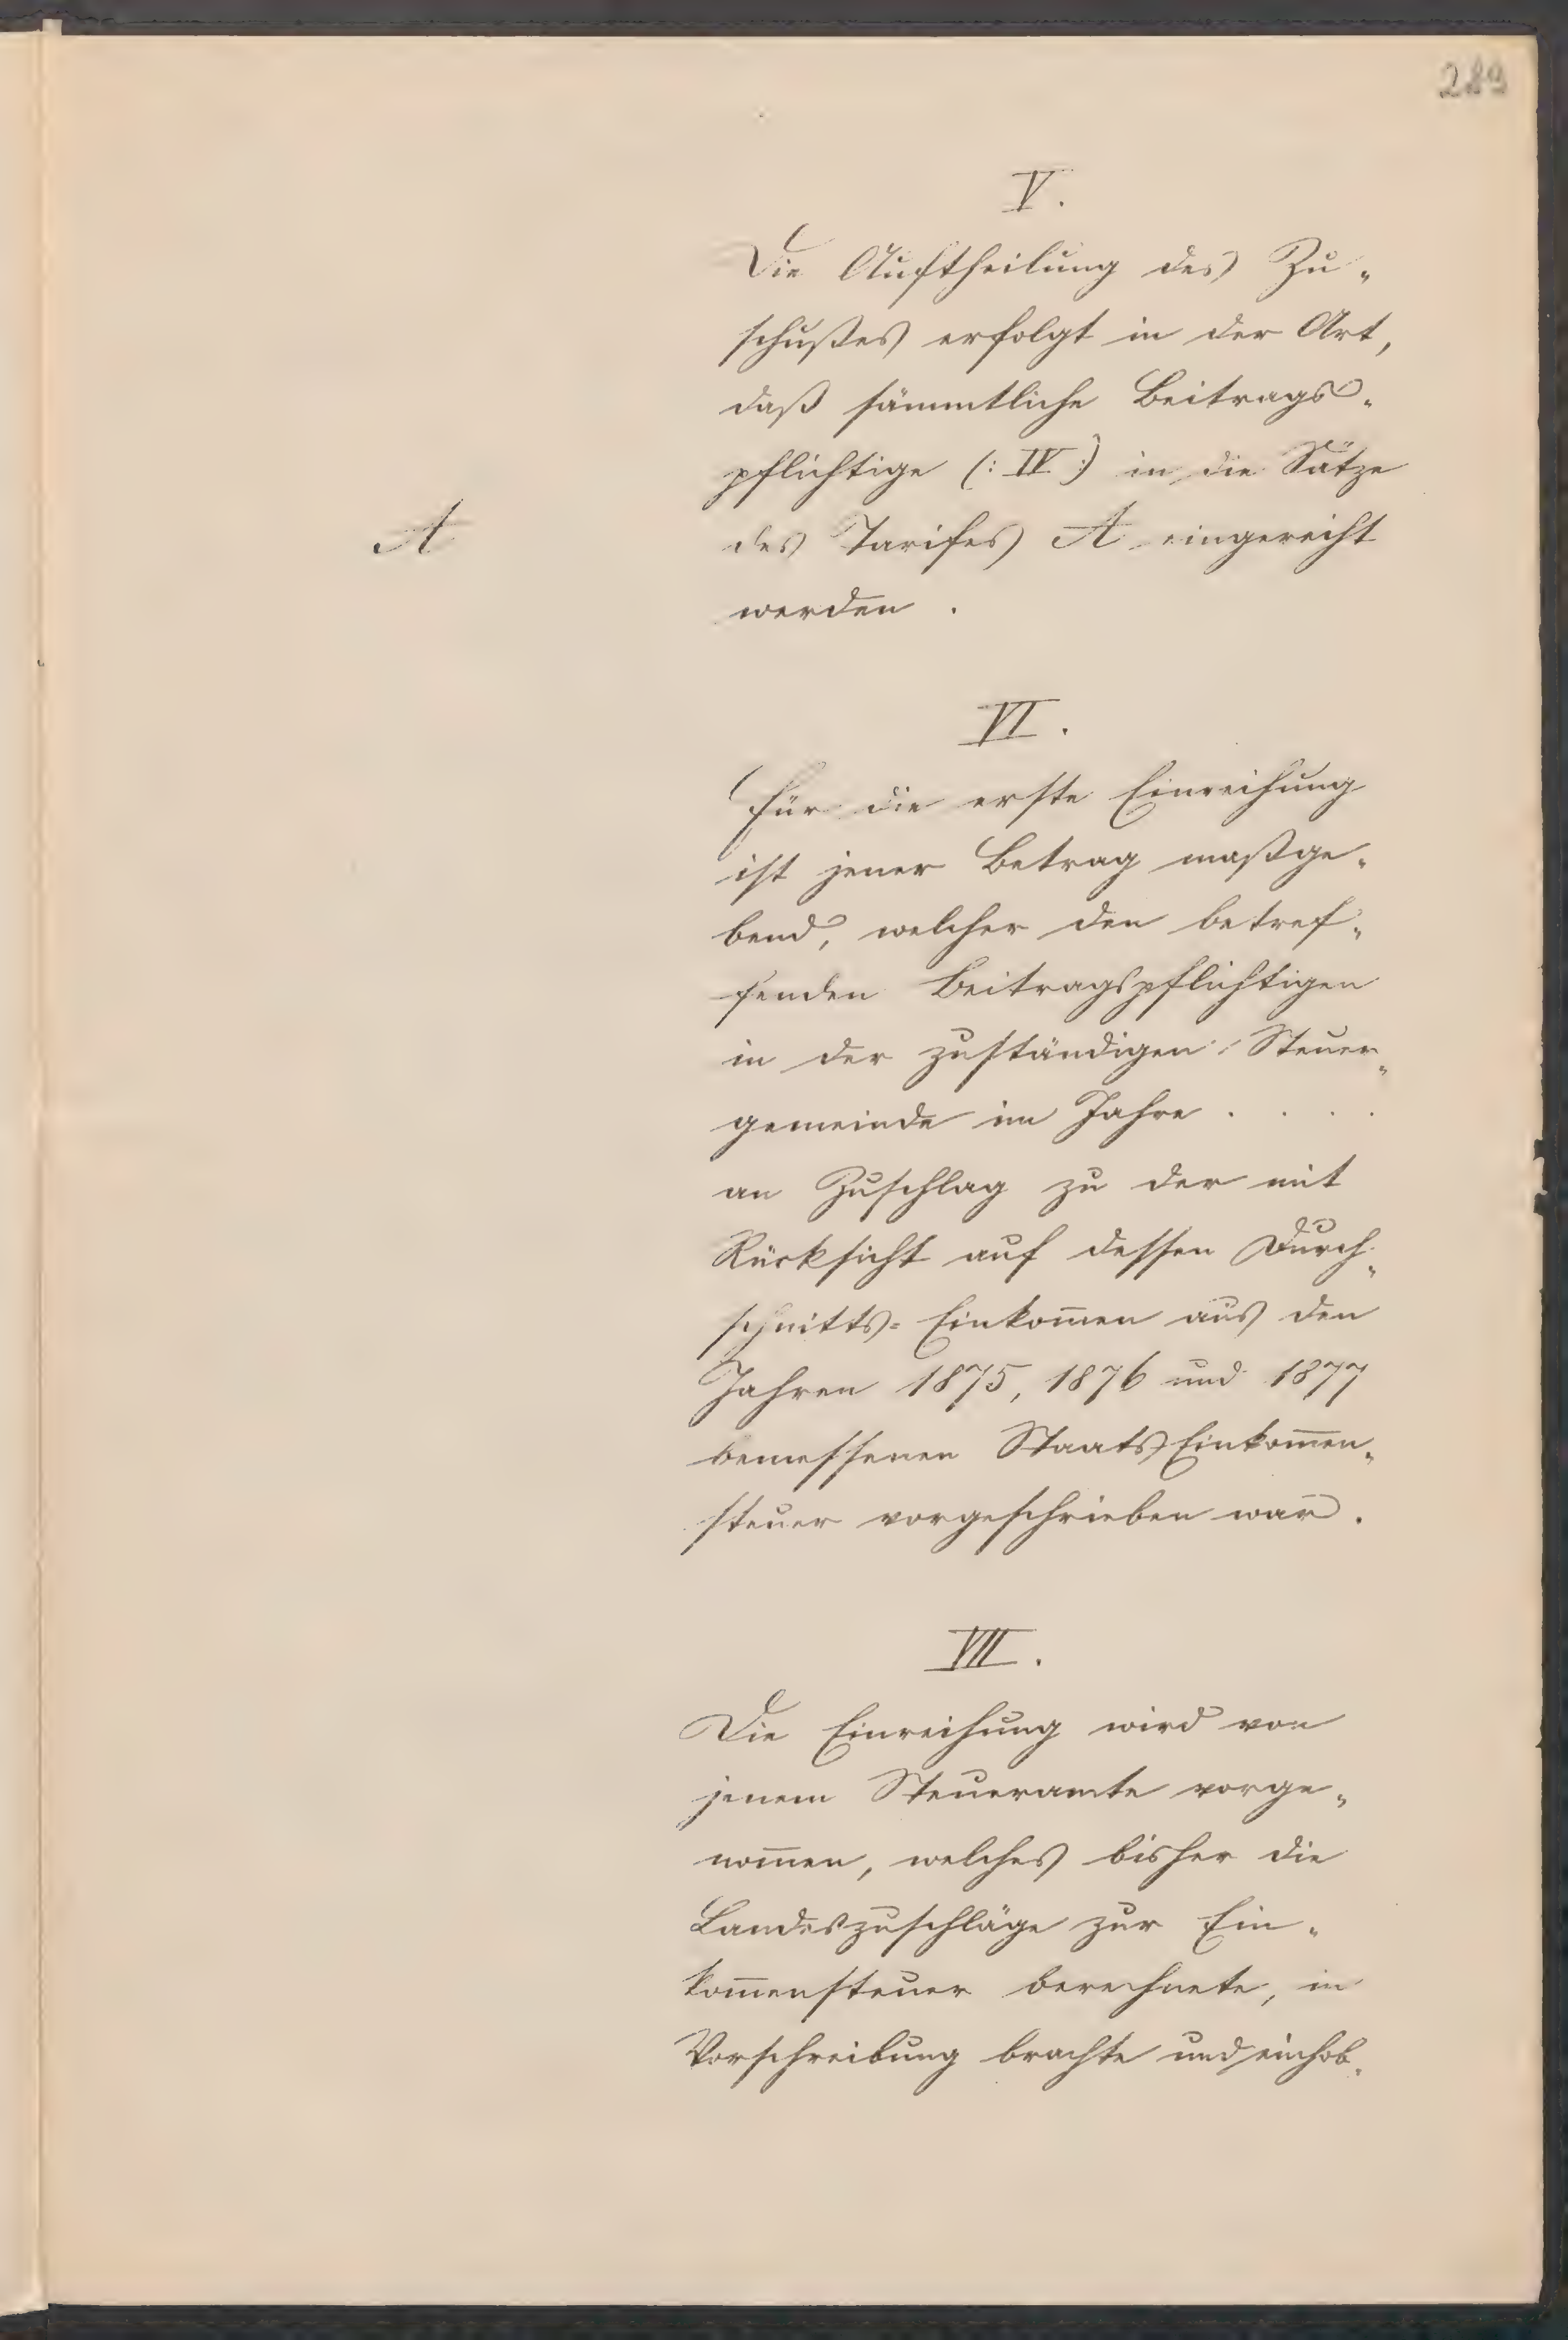 289
V.
Die Auftheilung des Zu-
schußes erfolgt in der Art,
daß sämmtliche Beitrags-
pflichtige (: IV :) in die Sätze
A
des Tarifes A eingereiht
werden .
VI.
Für die erste Einreihung
ist jener Betrag maßge-
bend, welcher den betref-
fenden Beitragspflichtigen
in der zuständigen Steuer-
gemeinde im Jahre . . . .
an Zuschlag zu der mit
Rücksicht auf dessen Durch-
schnitts= Einkom̅en aus den
Jahren 1875, 1876 und 1877
bemessenen Staats Einkom̅en-
steuer vorgeschrieben war .
VII.
Die Einreihung wird von
jenem Steueramte vorge-
nom̅en, welches bisher die
Landeszuschläge zur Ein-
kom̅ensteuer berechnete, in
Vorschreibung brachte und einhob.